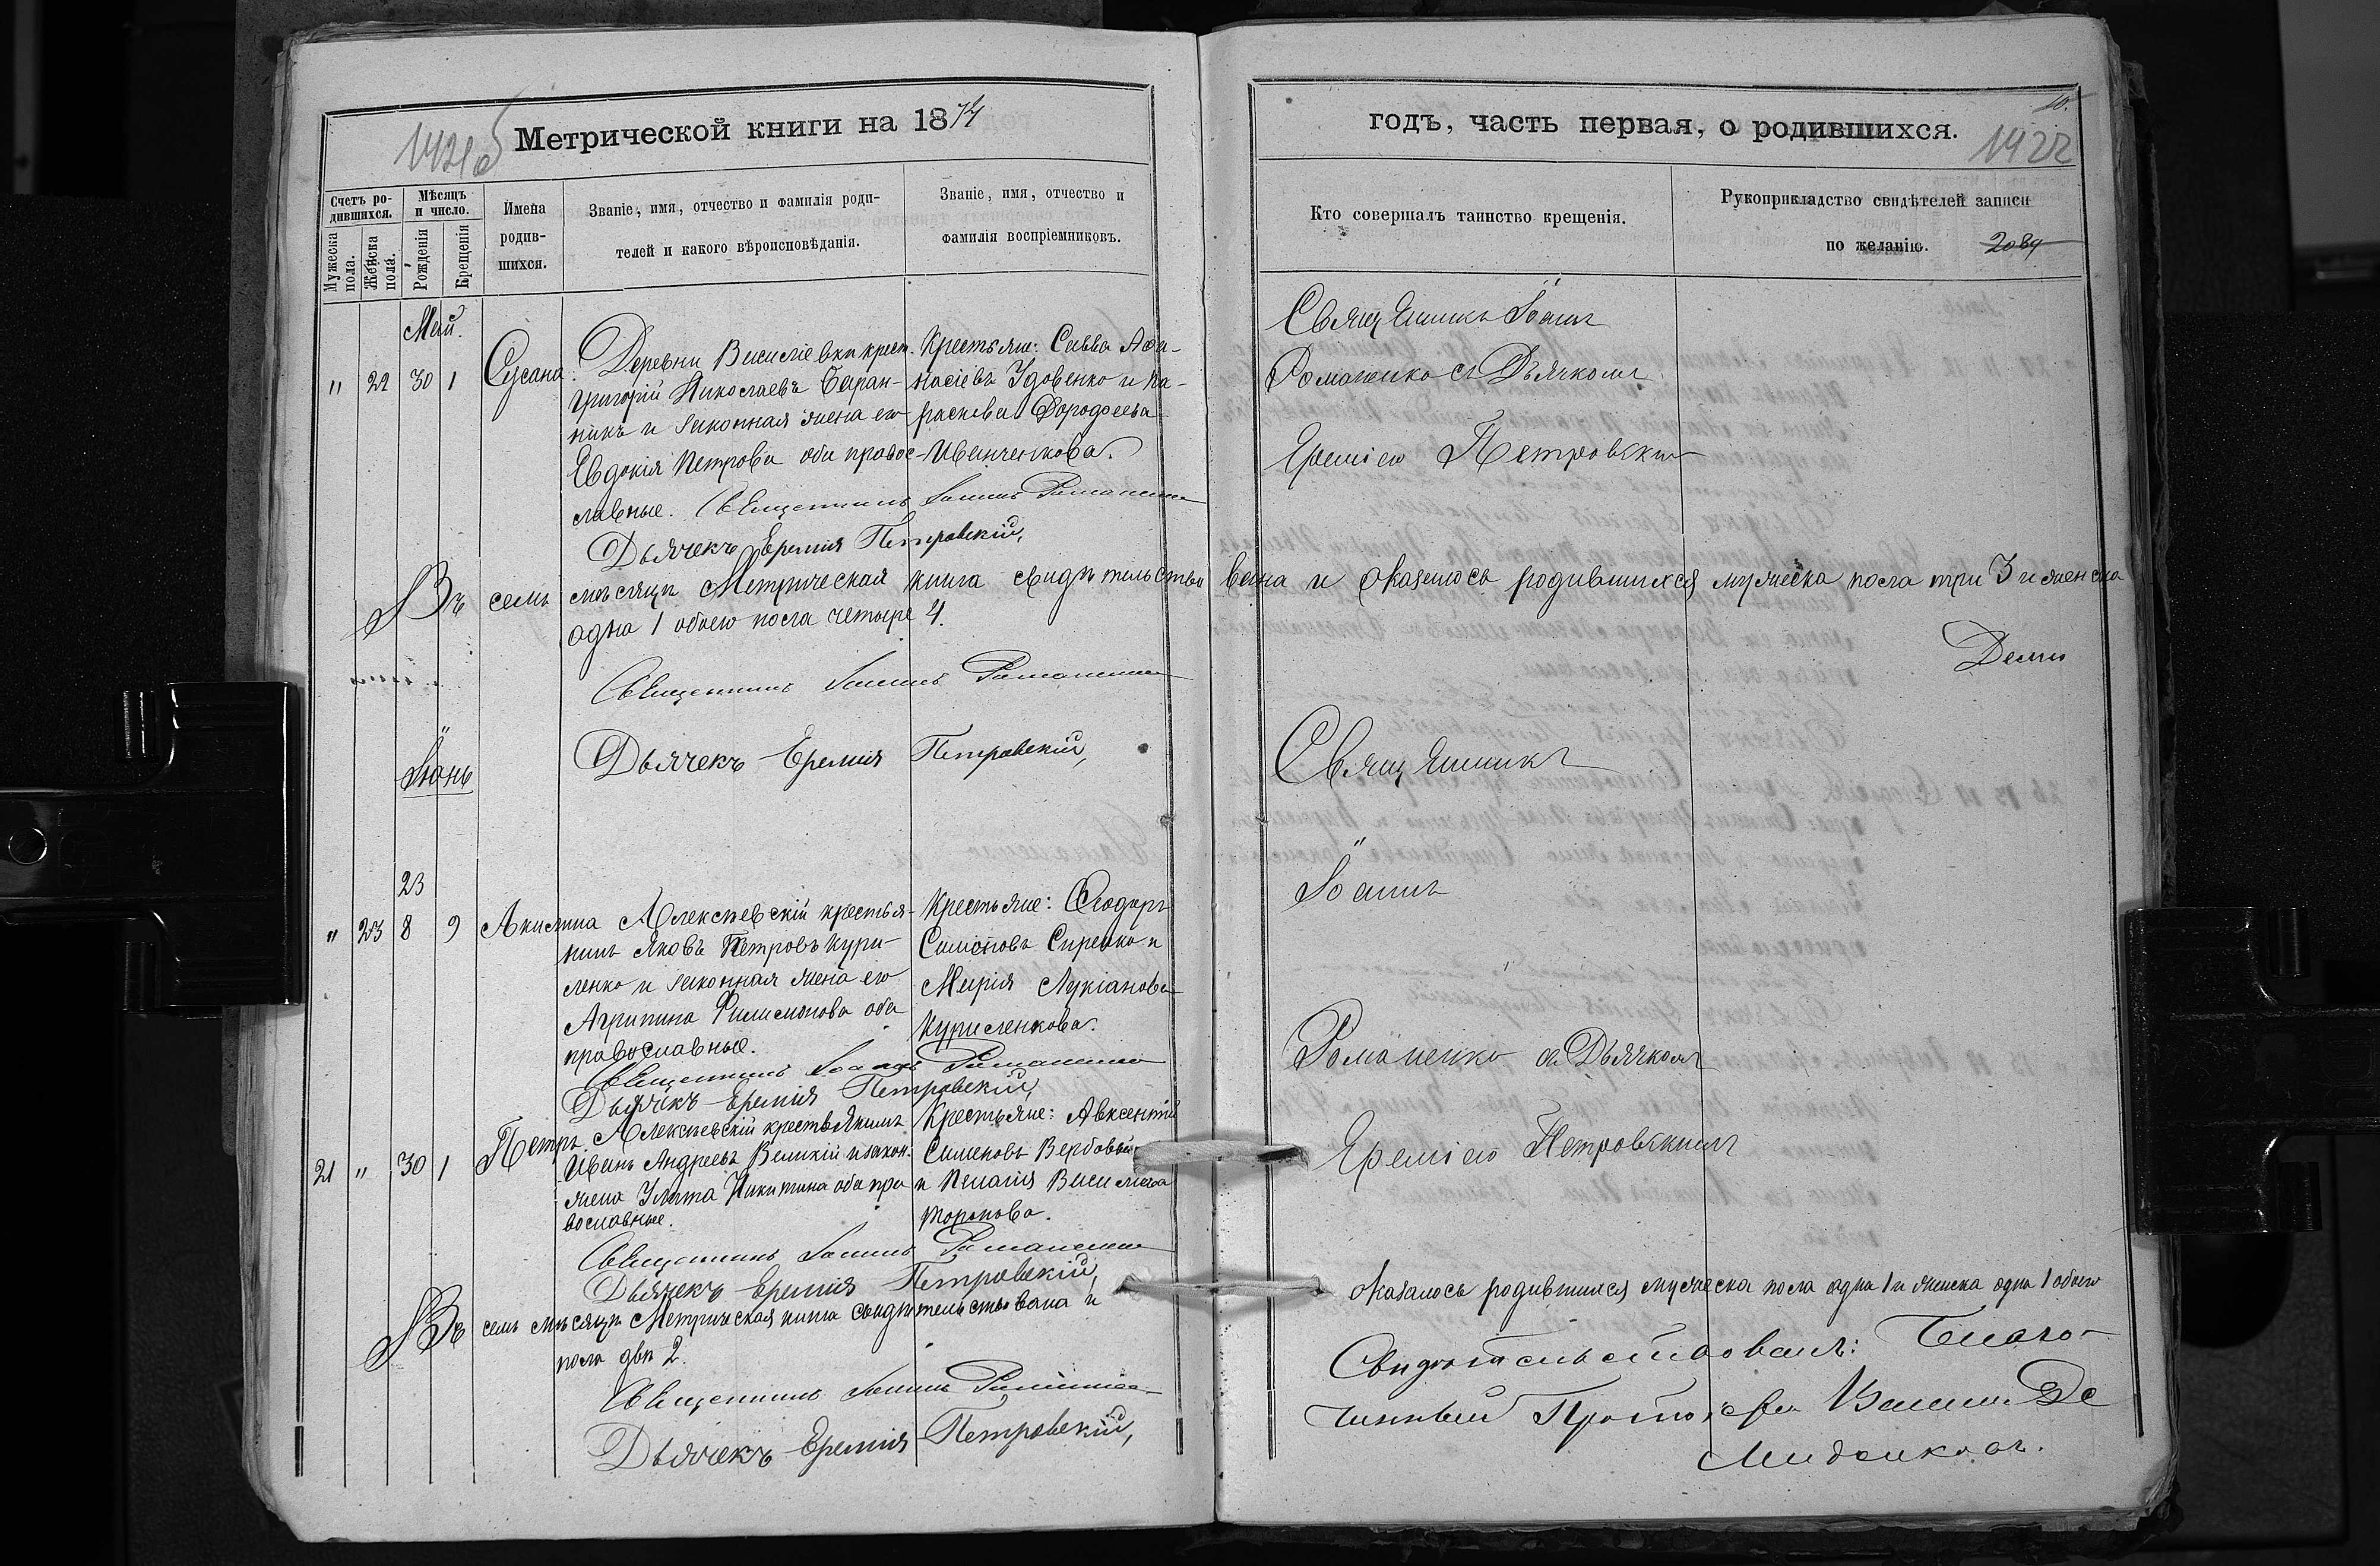 1421об
Метрической книги на 1874
Счетъ ро-
дившихся.
Мужеска
пола.
Женска
пола.
Мѣсяцъ
и число.
Рожденія
Крещенія
Имена
родив-
шихся.
Званіе, имя, отчество и фамилія роди-
телей и какого вѣроисповѣданія.
Званіе, имя, отчество и
фамилія воспріемниковъ.
Май.
" 22 30 1
Сусана.
Деревни Василіевки крест.
Григорій Николаевъ Баран-
никъ и законная жена его
Евдокія Петрова оба правос-
лавные. Священникъ Іоаннъ Романенко
Дьячекъ Еремія Петровскій,
Крестьяне: Савва Афа-
насіевъ Удовенко и Па-
раскева Дорофеева
Иванченкова.
Въ семъ мѣсяцѣ Метрическая книга свидѣтельство вана и оказалось родившихся мужеска пола три 3 и женска
одна 1 обоего пола четыре 4.
Священникъ Іоаннъ Романенко
Дьячекъ Еремія Петровскій,
Іюнь
23
" 23 8 9
Акилина
Алексѣевскій крестья-
нинъ Яковъ Петровъ Кури-
ленко и законная жена его
Агрипина Филимонова оба
православные.
Священникъ Іоаннъ Романенко
Дьячекъ Еремія Петровскій,
Крестьяне: Ѳеодоръ
Симоновъ Сиренко и
Марія Лукіанова
Куриленкова.
21 " 30 1
Петръ
Алексѣевскій крестьянинъ
Иванъ Андреевъ Великій и закон.
жена Улита Никитина оба пра
вославные.
Священникъ Іоаннъ Романенко
Дьячекъ Еремія Петровскій,
Крестьяне: Авксентій
Сименовъ Вербовый
и Пелагія Василіева
Торонова.
Въ семъ мѣсяцѣ Метрическая книга свидѣтельствована и
пола двѣ 2.
Священникъ Іоаннъ Романенко
Дьячекъ Еремія Петровскій,
10.
годъ, часть первая, о родившихся.
1422
Кто совершалъ таинство крещенія.
Рукоприкладство свидѣтелей записи
по желанію. 2089
Священникъ Іоаннъ
Романенко съ Дьячкомъ
Ереміею Петровскимъ
Священникъ
Іоаннъ
Романенко съ Дьячкомъ
Ереміею Петровскимъ
оказалось родившихся мужеска пола одна 1 и женска одна 1 обоего
Свидѣтельствовалъ: Благо-
чинный